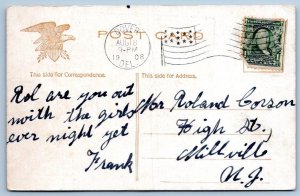 POST CARD
AUG 18
3-PM
1908
DEL.
This side for Correspondence.
This side for Address.
Rol are you out
with the girls
ever night yet
Frank
Mr Roland Corson
High St.,
Millville
N.J.